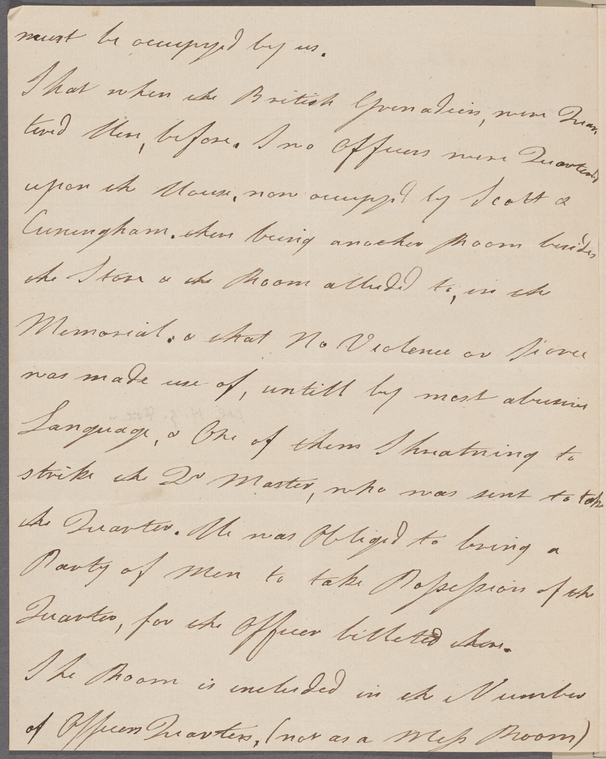 must be occupyd by us.
That when the British Grenadiers, were Quar
terd Here, before. Two officers were Quarterd
upon the House, now occupyd by Scott &
Cuningham. there being another Room besides
the Store & the Room alluded to, in the
Memorial. & that No Violence or Force
was made use of, untill by most abusive
Language, & One of them Threatning to
strike the Qr Master, who was sent to take
the Quarter. He was Obliged to bring a
Party of Men to take Possession of the
Quarter, for the Officer billeted there.
The Room is included in the Number
of Officers Quarters, (not as a Mess Room)